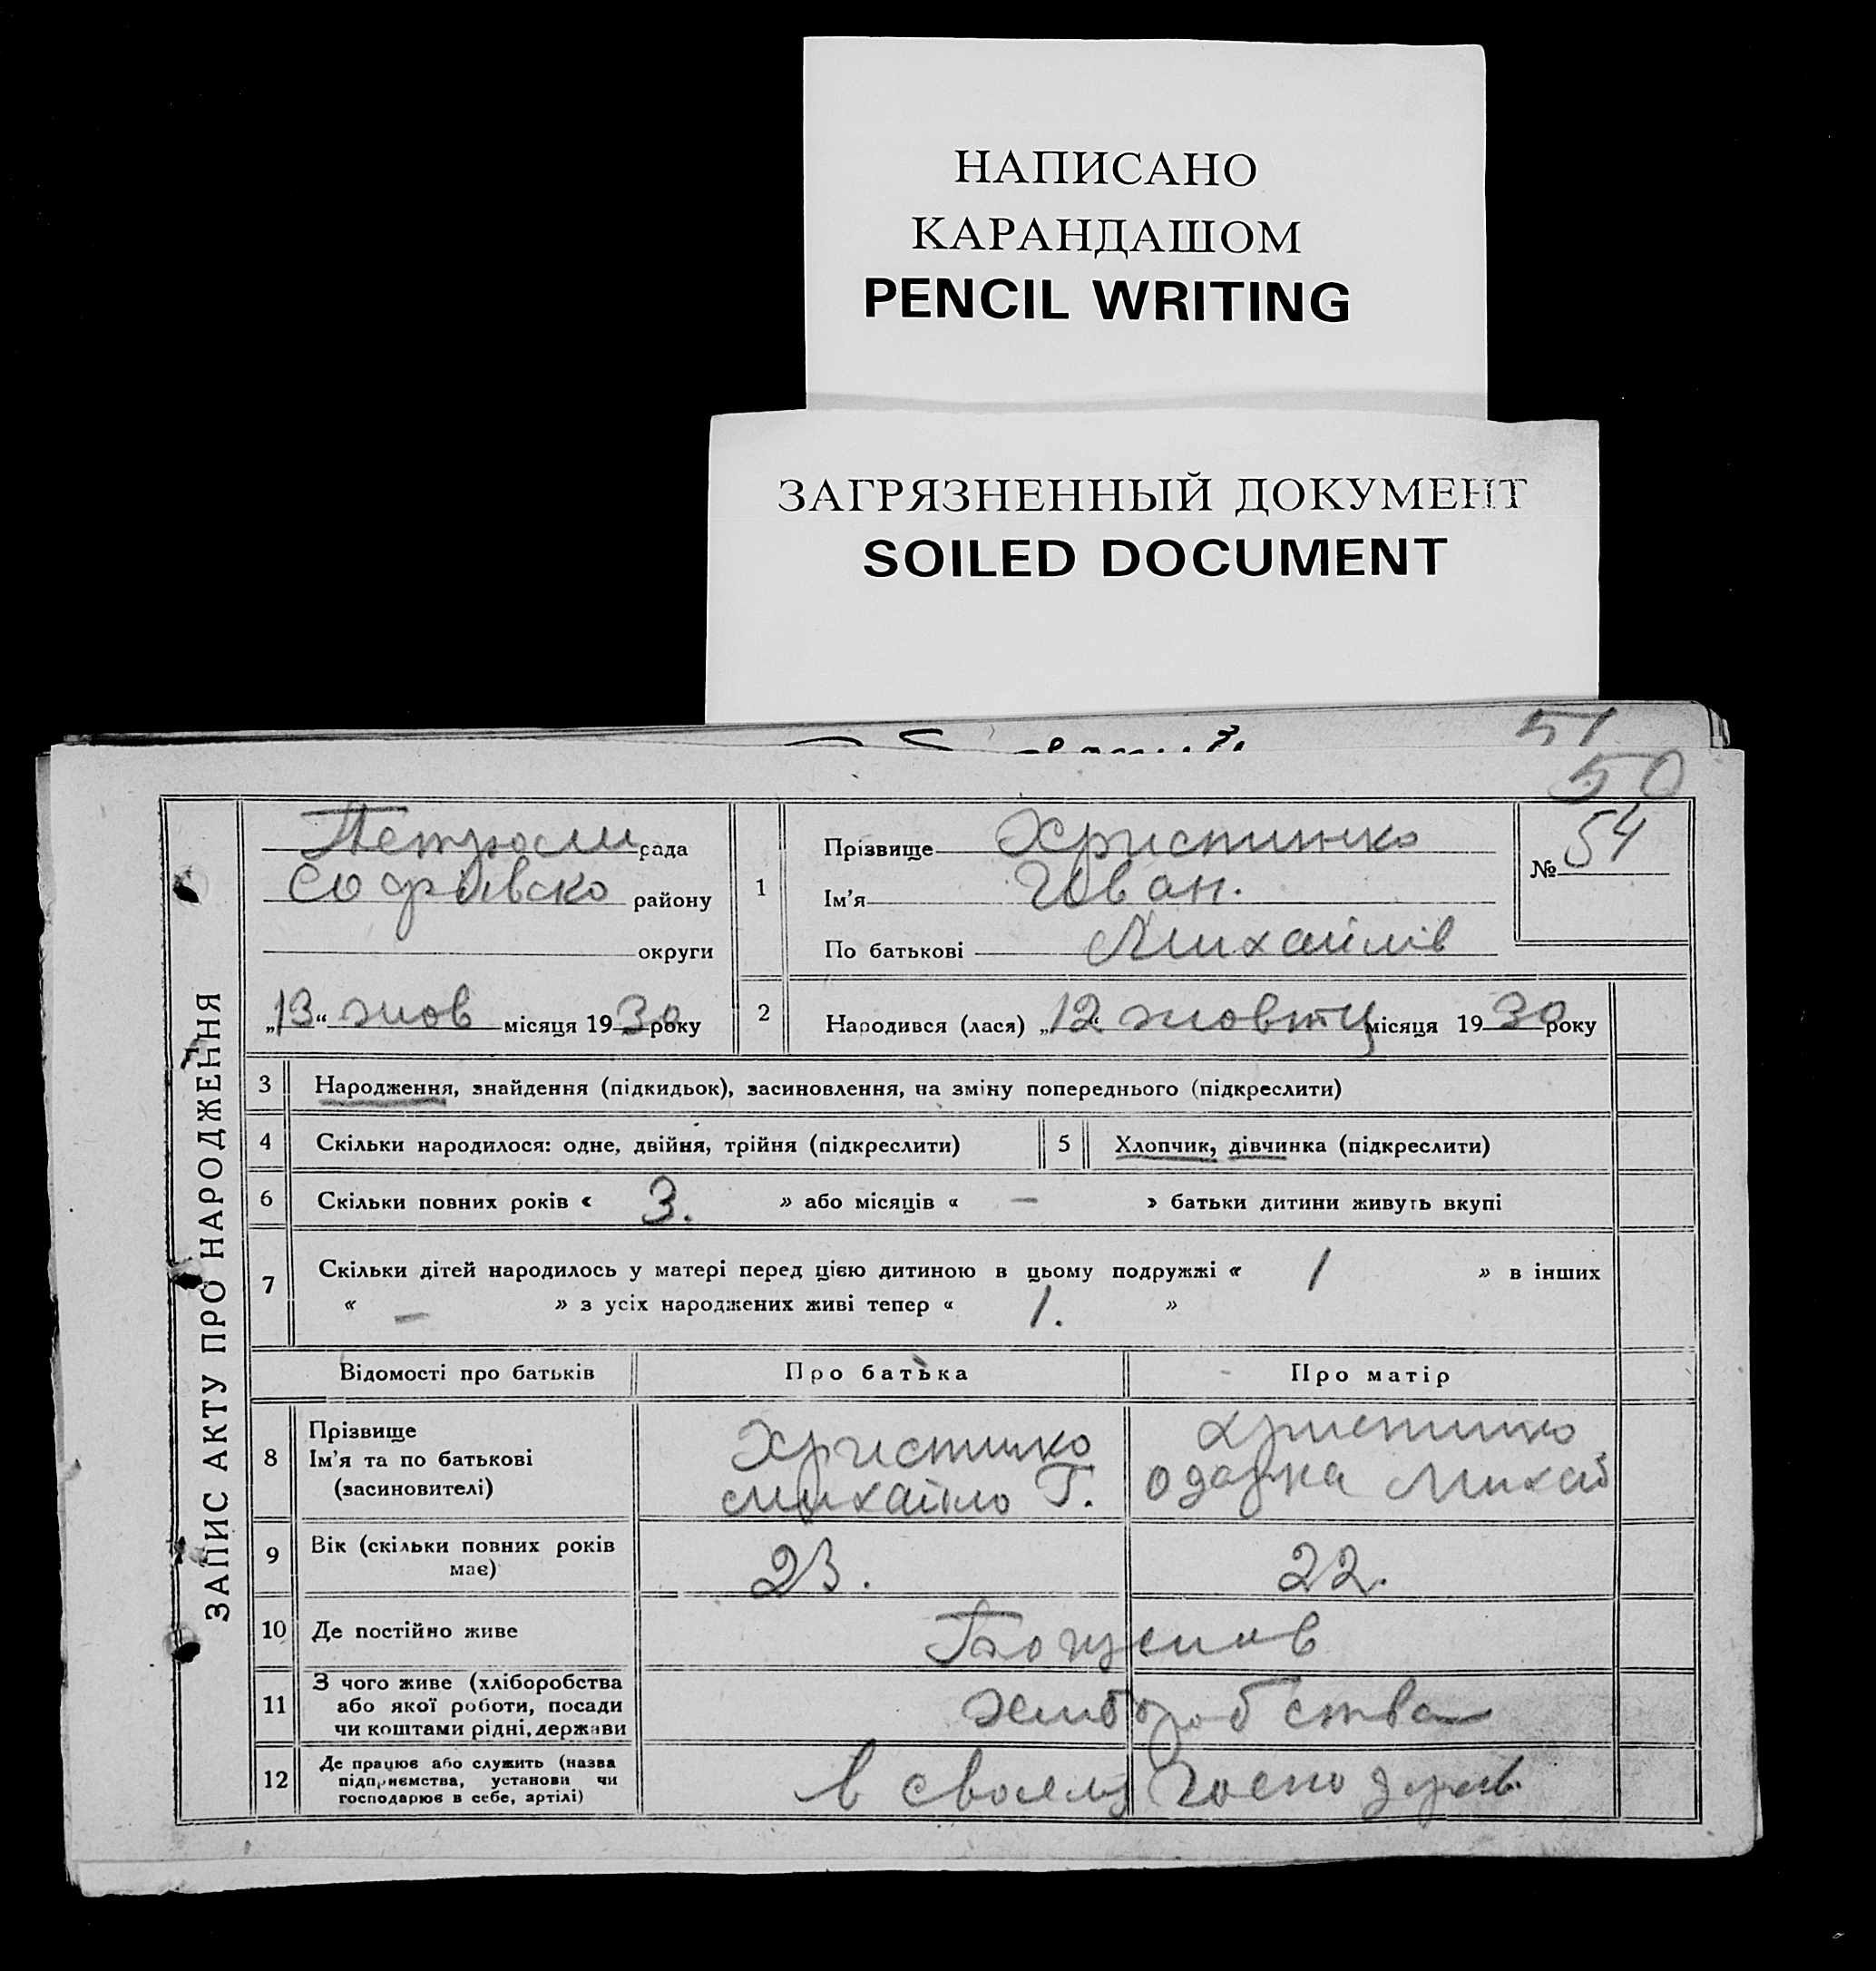 НАПИСАНО
КАРАНДАШОМ
PENCIL WRITING
ЗАГРЯЗНЕННЫЙ ДОКУМЕНТ
SOILED DOCUMENT
51
50
ЗАПИС АКТУ ПРО НАРОДЖЕННЯ
рада
району
округи
„13“ жов місяця 1930 року
1
Прізвище Христинко
Ім'я Іван.
По батькові Михайлів
№ 54
2
Народився (лася) „12“ жовтц місяця 1930 року
3 Народження, знайдення (підкидьок), засиновлення, на зміну попереднього (підкреслити)
4 Скільки народилося: одне, двійня, трійня (підкреслити)
5 Хлопчик, дівчинка (підкреслити)
6 Скільки повних років « 3. » або місяців « — » батьки дитини живуть вкупі
7 Скільки дітей народилось у матері перед цією дитиною в цьому подружжі « 1 » в інших
« — » з усіх народжених живі тепер « 1. »
Відомості про батьків Про батька Про матір
8 Прізвище
Ім'я та по батькові
(засиновителі)
Христинко
Михайло Г.
Христинко
Одарка Михай
9 Вік (скільки повних років
має)
23. 22.
10 Де постійно живе
11 З чого живе (хліборобства
або якої роботи, посади
чи коштами рідні, держави
хлиборобства
12 Де працює або служить (назва
підприємства, установи чи
господарює в себе, артілі)
в своему